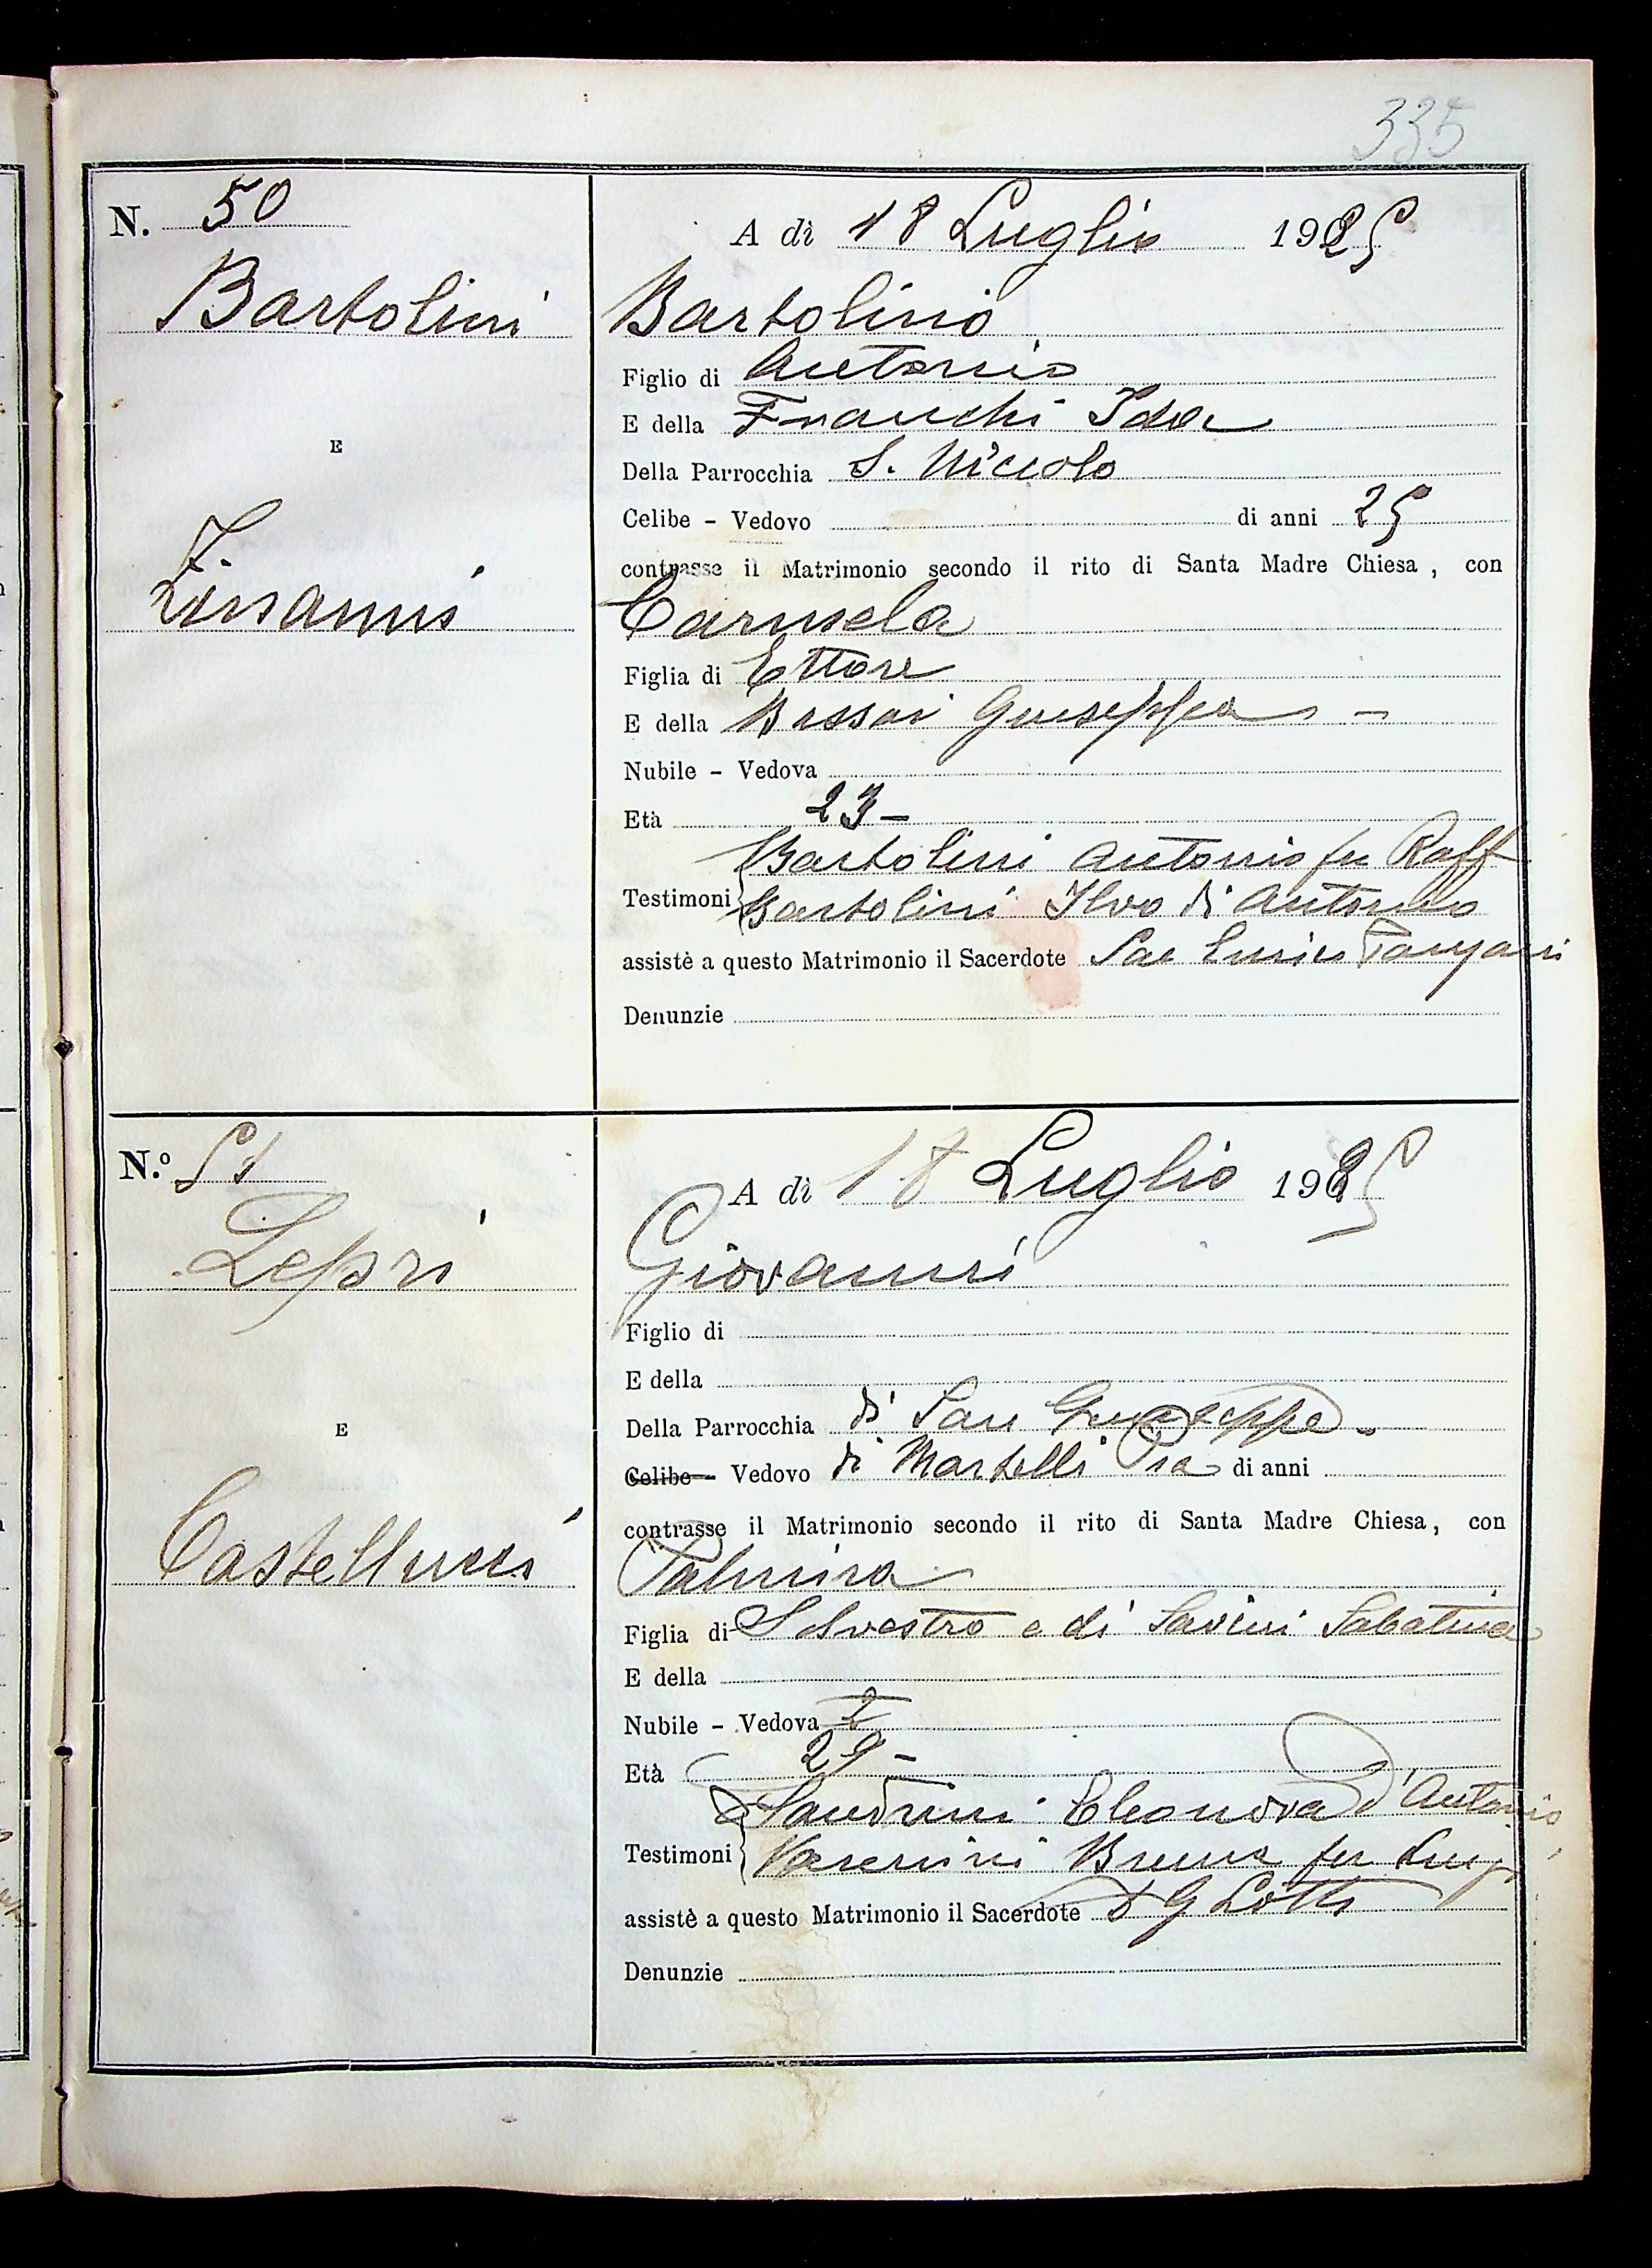 335
N. 50
A dì 18 Luglio 1925
Bartolini
Bartolinio
Figlio di Antonio
E della Franchi Ida
E
Della Parrocchia S. Niccolo
Celibe - Vedovo di anni 25
contrasse il Matrimonio secondo il rito di Santa Madre Chiesa, con
Carmela
Figlia di Ettore
E della Giuseppa -
Nubile - Vedova
Età 23 -
Bartolini Antonio fu Raff
Testimoni
Bartolini Ilvo di Antonio
assistè a questo Matrimonio il Sacerdote Sac Enrico
Denunzie
N.º 51
A dì 18 Luglio 1925
Lepri
Giovanni
Figlio di
E della
E
Della Parrocchia di San Giuseppe
Celibe - Vedovo di Martelli Pia di anni
contrasse il Matrimonio secondo il rito di Santa Madre Chiesa, con
Castellucci
Palmira
Figlia di Silvestro e di Savini Sabatina
E della
Nubile - Vedova
Età 29 -
Sandrini Eleonora d'Antonio
Testimoni
Bruna fu Luigi
assistè a questo Matrimonio il Sacerdote D G Lotti
Denunzie